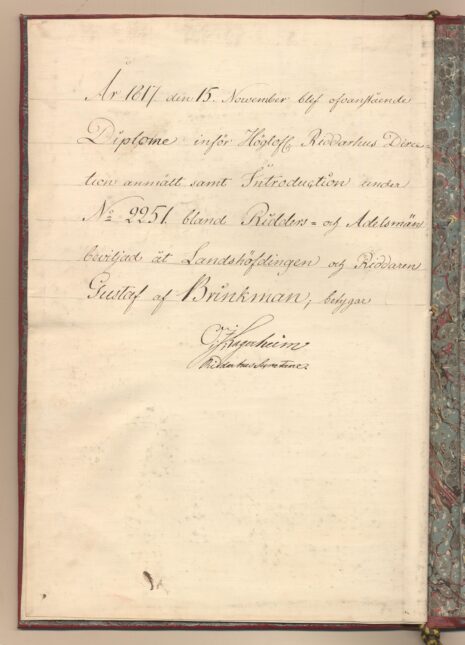 År 1817 den 15. November blef ofvanstående
Diplome inför Höglofl. Riddarhus Direc-
tion anmält samt Introduction under
No 2251. bland Ridders- och Adelsmän
beviljad åt Landshöfdingen och Riddaren
Gustaf af Brinkman, betygar
Riddarhus Secreterare